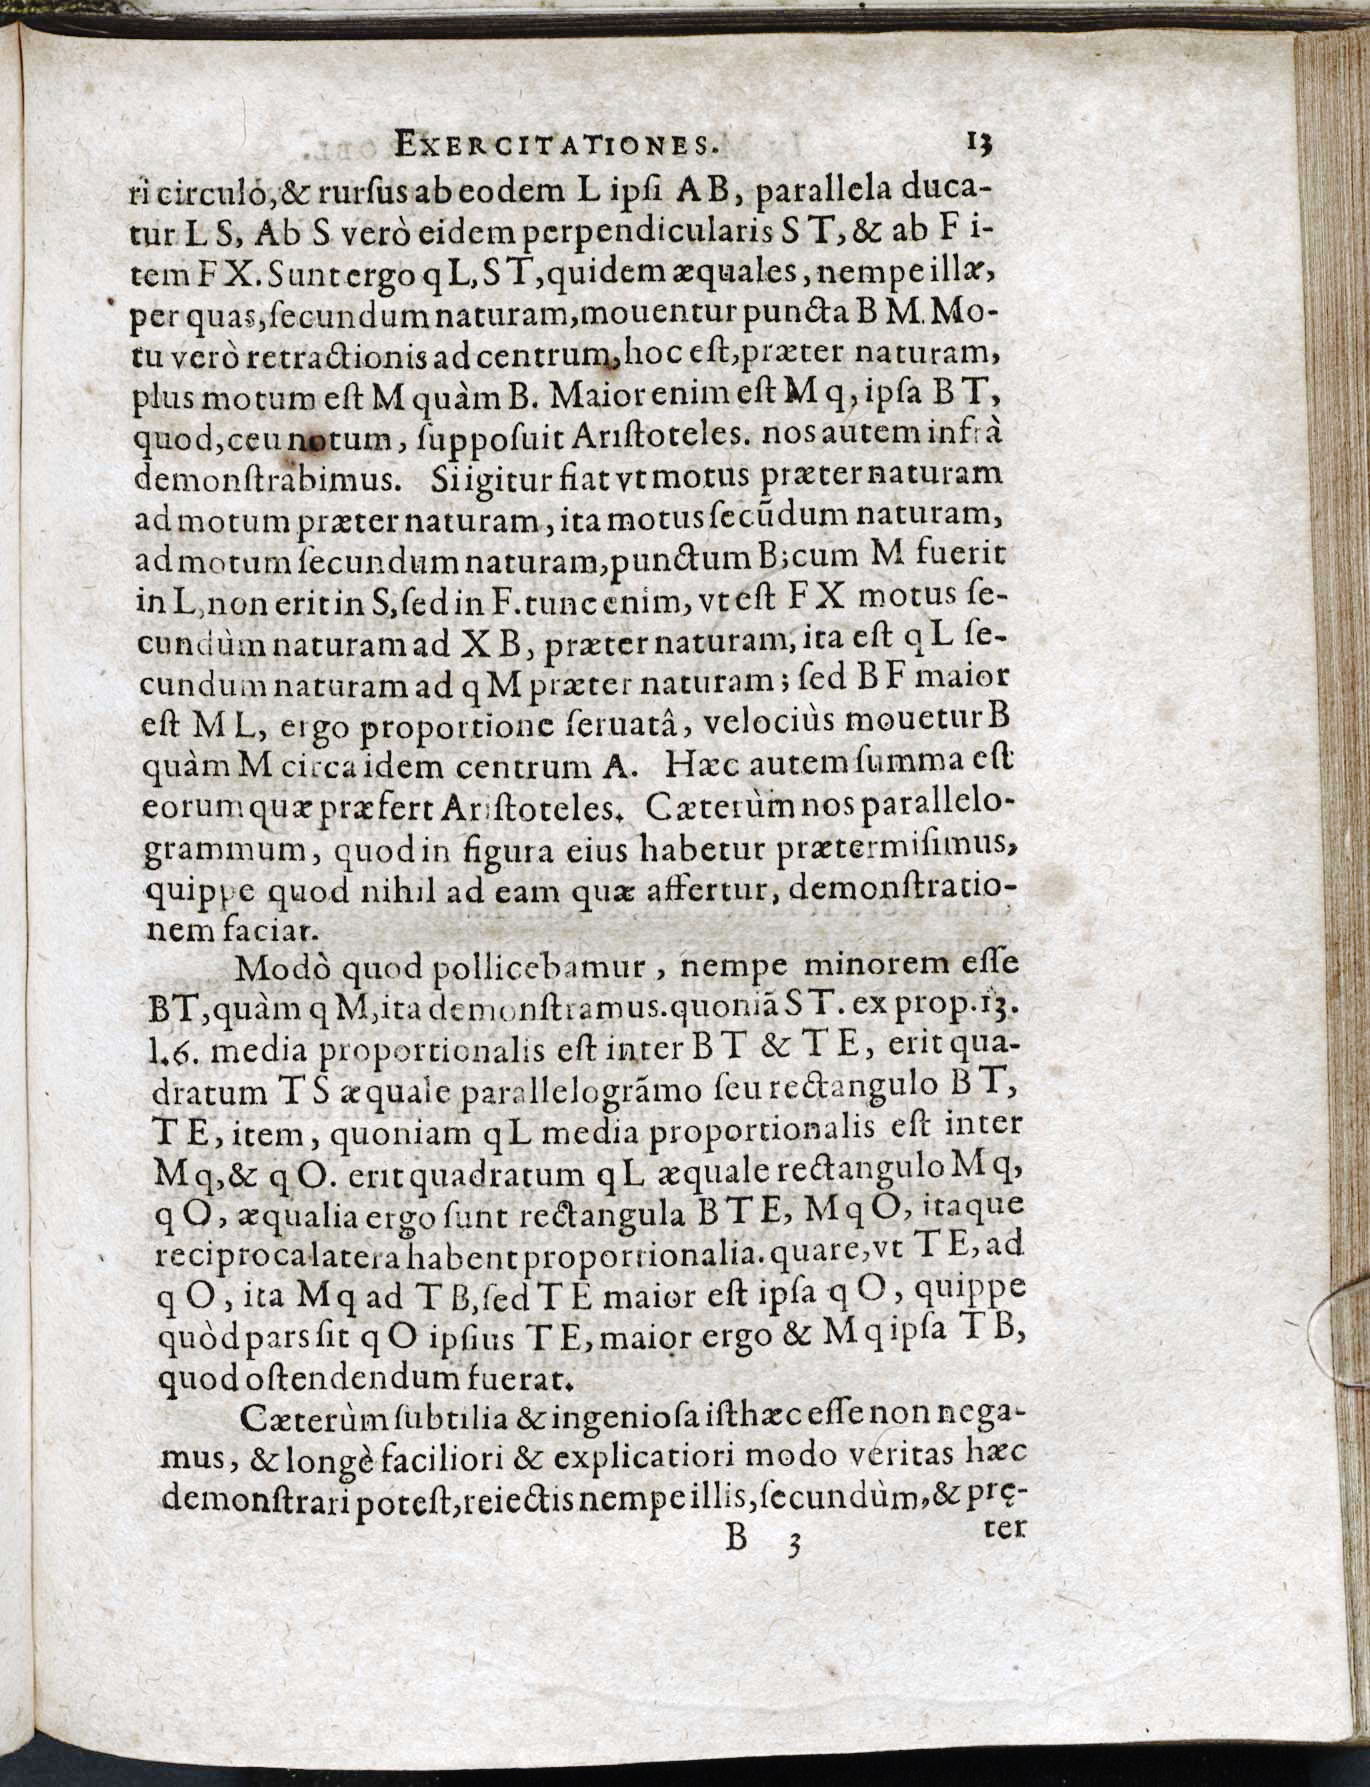 EXERCITATIONES. 13
ri circulo, & rurſus ab eodem L ipſi A B, parallela duca-
tur L S, Ab S verò eidem perpendicularis S T, & ab F i-
tem F X. Sunt ergo q L, S T, quidem æquales, nempe illæ,
per quas, ſecundum naturam, mouentur puncta B M. Mo-
tu verò retractionis ad centrum, hoc eſt, præter naturam,
plus motum eſt M quàm B. Maior enim eſt M q, ipſa B T,
quod, ceu notum, ſuppoſuit Ariſtoteles. nos autem infrà
demonſtrabimus. Si igitur fiat vt motus præter naturam
ad motum præter naturam, ita motus ſecũdum naturam,
ad motum ſecundum naturam, punctum B; cum M fuerit
in L, non erit in S, ſed in F. tunc enim, vt eſt F X motus ſe-
cundùm naturam ad X B, præter naturam, ita eſt q L ſe-
cundum naturam ad q M præter naturam; ſed B F maior
eſt M L, ergo proportione ſeruatâ, velociùs mouetur B
quàm M circa idem centrum A. Hæc autem ſumma eſt
eorum quæ præfert Ariſtoteles. Cæterùm nos parallelo-
grammum, quod in figura eius habetur prætermiſimus,
quippe quod nihil ad eam quæ affertur, demonſtratio-
nem faciat.
Modò quod pollicebamur, nempe minorem eſſe
B T, quàm q M, ita demonſtramus. quoniã S T. ex prop. 13.
l. 6. media proportionalis eſt inter B T & T E, erit qua-
dratum T S æquale parallelogrãmo ſeu rectangulo B T,
T E, item, quoniam q L media proportionalis eſt inter
M q, & q O. erit quadratum q L æquale rectangulo M q,
q O, æqualia ergo ſunt rectangula B T E, M q O, itaque
reciproca latera habent proportionalia. quare, vt T E, ad
q O, ita M q ad T B, ſed T E maior eſt ipſa q O, quippe
quòd pars ſit q O ipſius T E, maior ergo & M q ipſa T B,
quod oſtendendum fuerat.
Cæterùm ſubtilia & ingenioſa iſthæc eſſe non nega-
mus, & longè faciliori & explicatiori modo veritas hæc
demonſtrari poteſt, reiectis nempe illis, ſecundùm, & prę-
B 3 ter